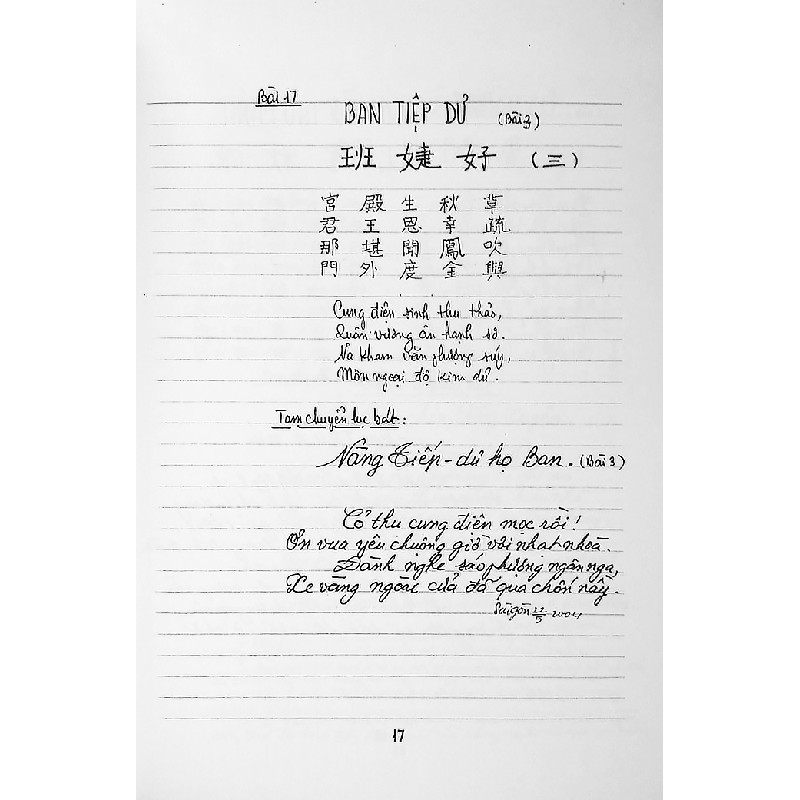 Bài 17
BAN TIỆP DƯ (Bài 3)
班婕妤 (三)
宮殿生秋草
君王恩幸疏
那堪聞鳳吹
門外度金輿
Cung điện sinh thu thảo,
Quân vương ân hạnh sơ.
Na kham văn phượng xúy,
Môn ngoại độ kim dư.
Tam chuyển lục bát:
Nàng Tiếp-dư họ Ban. (Bài 3)
Cỏ thu cung điện mọc rồi!
Ơn vua yêu chuộng giờ vời nhạt nhoà.
Đành nghe sáo phượng ngân nga,
Xe vàng ngoài cửa đã qua chốn nầy.
Sàigòn
17